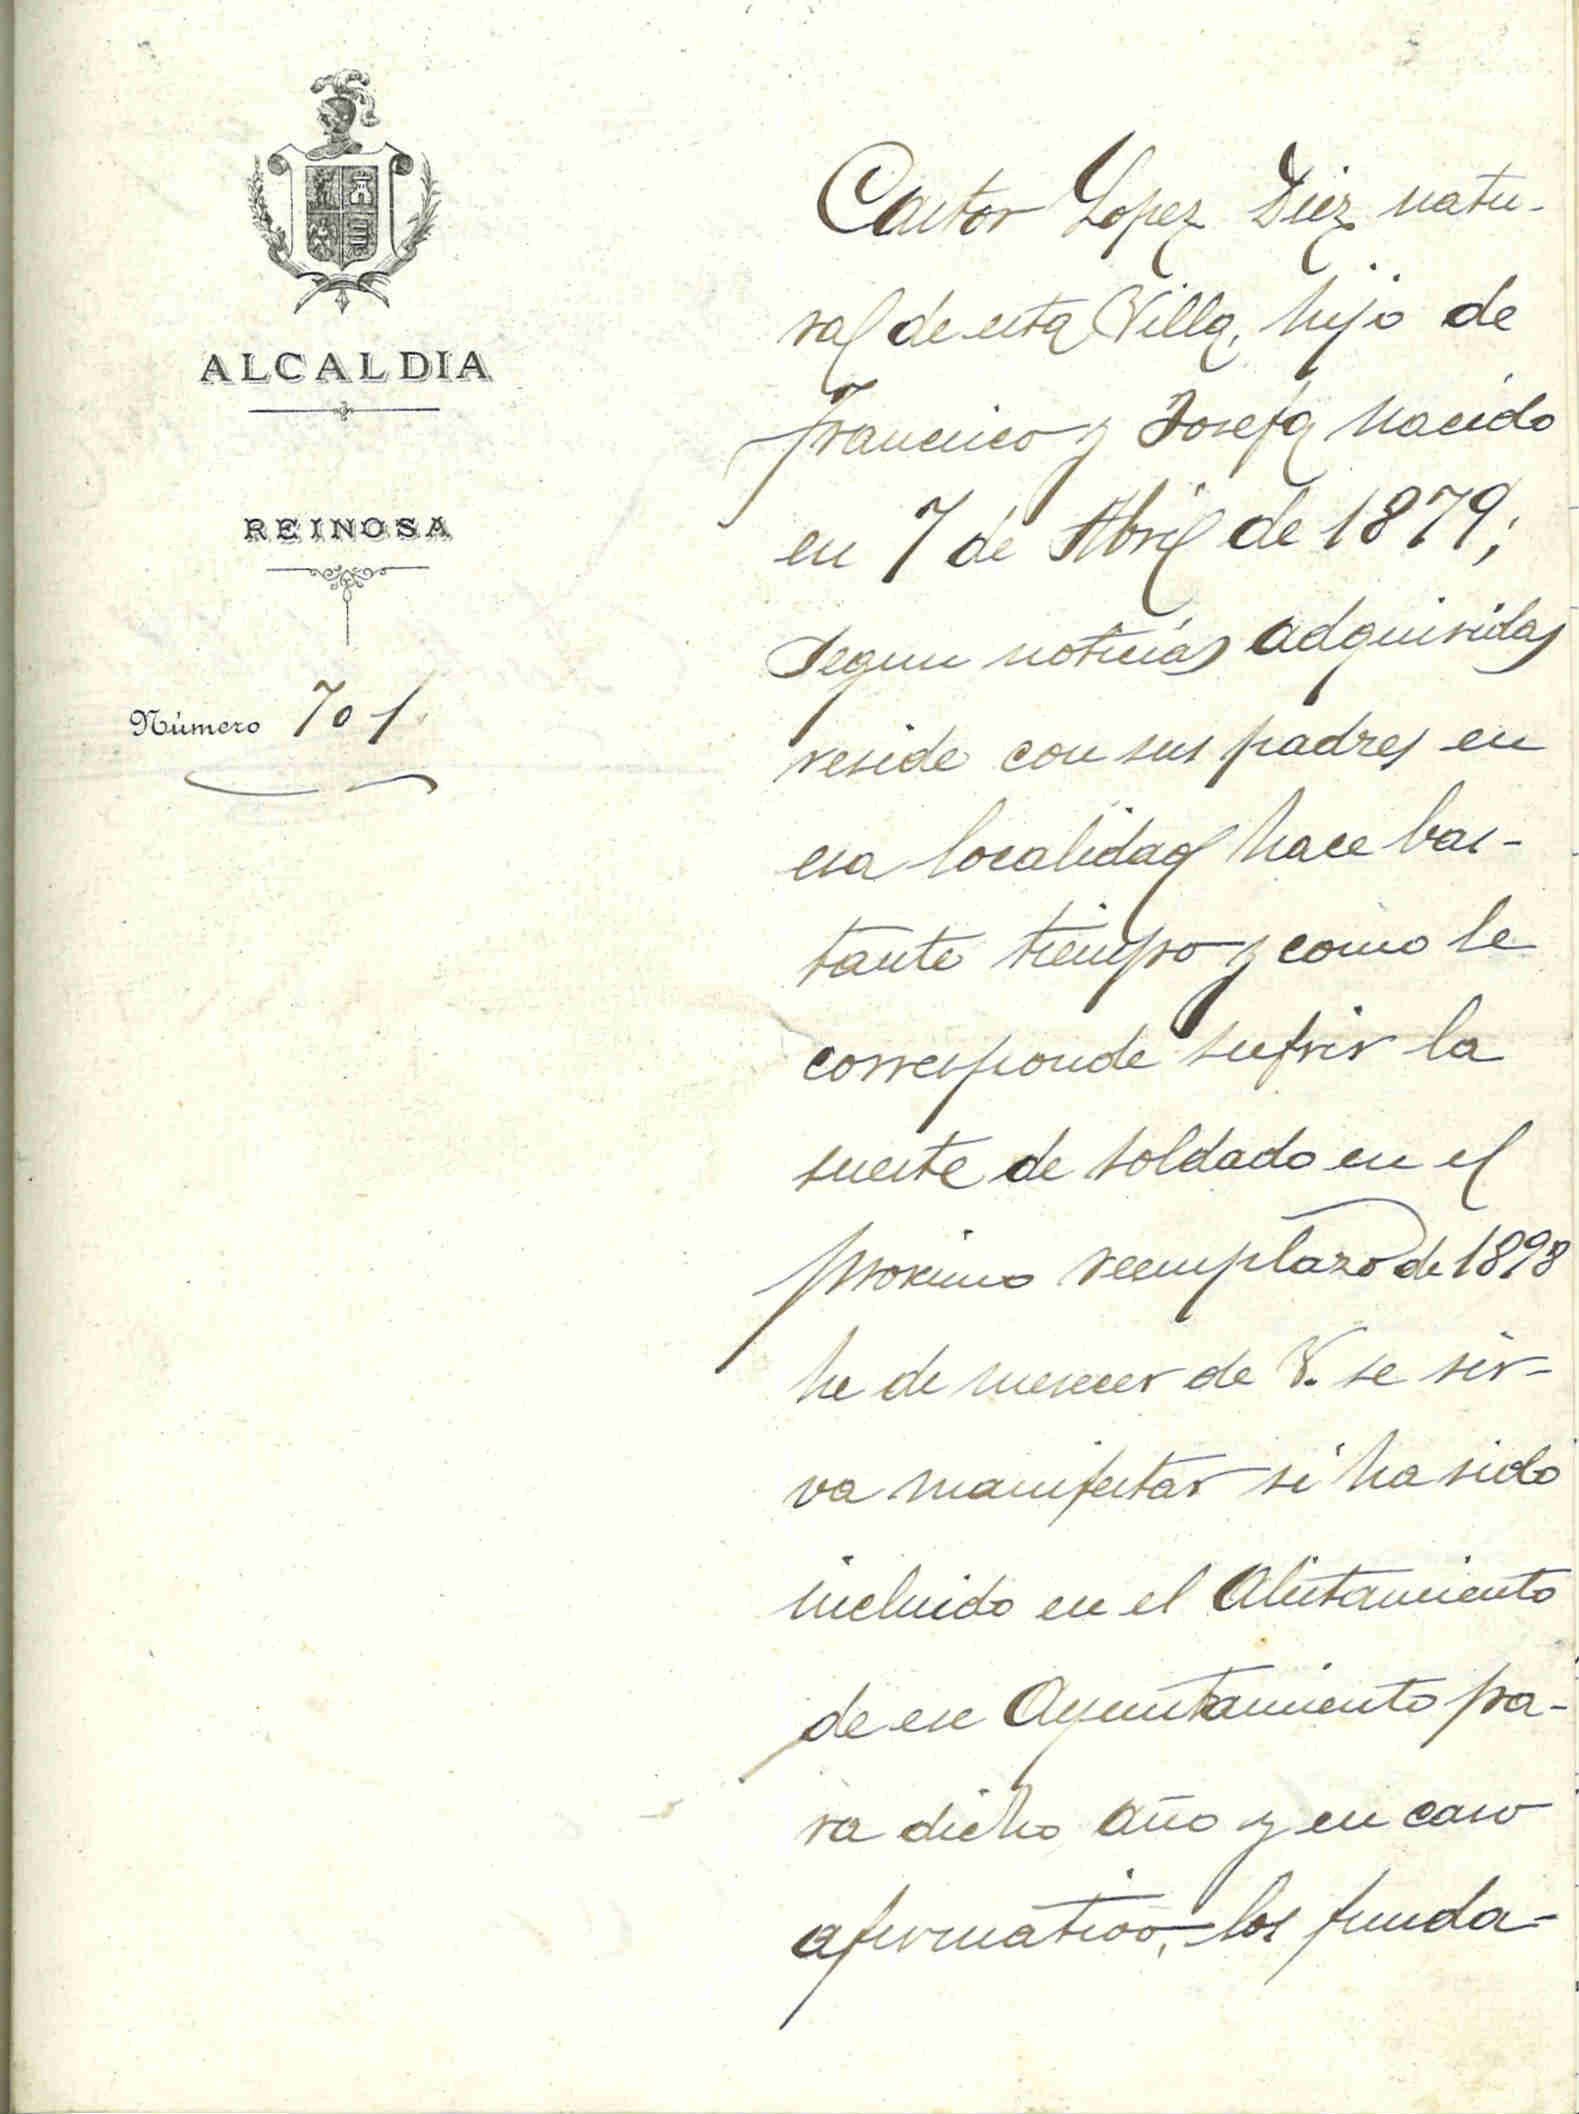 ALCALDIA
REINOSA
Número 701
Castor Lopez Diez natu-
ral de esta Villa, hijo de
Francisco y Josefa nacido
en 7 de Abril de 1879;
segun noticias adquiridas
reside con sus padres en
esa localidad hace bas-
tante tiempo y como le
corresponde sufrir la
suerte de soldado en el
proximo reemplazo de 1898
he de merecer de V. se sir-
va manifestar si ha sido
incluido en el Alistamiento
de ese Ayuntamiento pa-
ra dicho año y en caso
afirmativo, los funda-